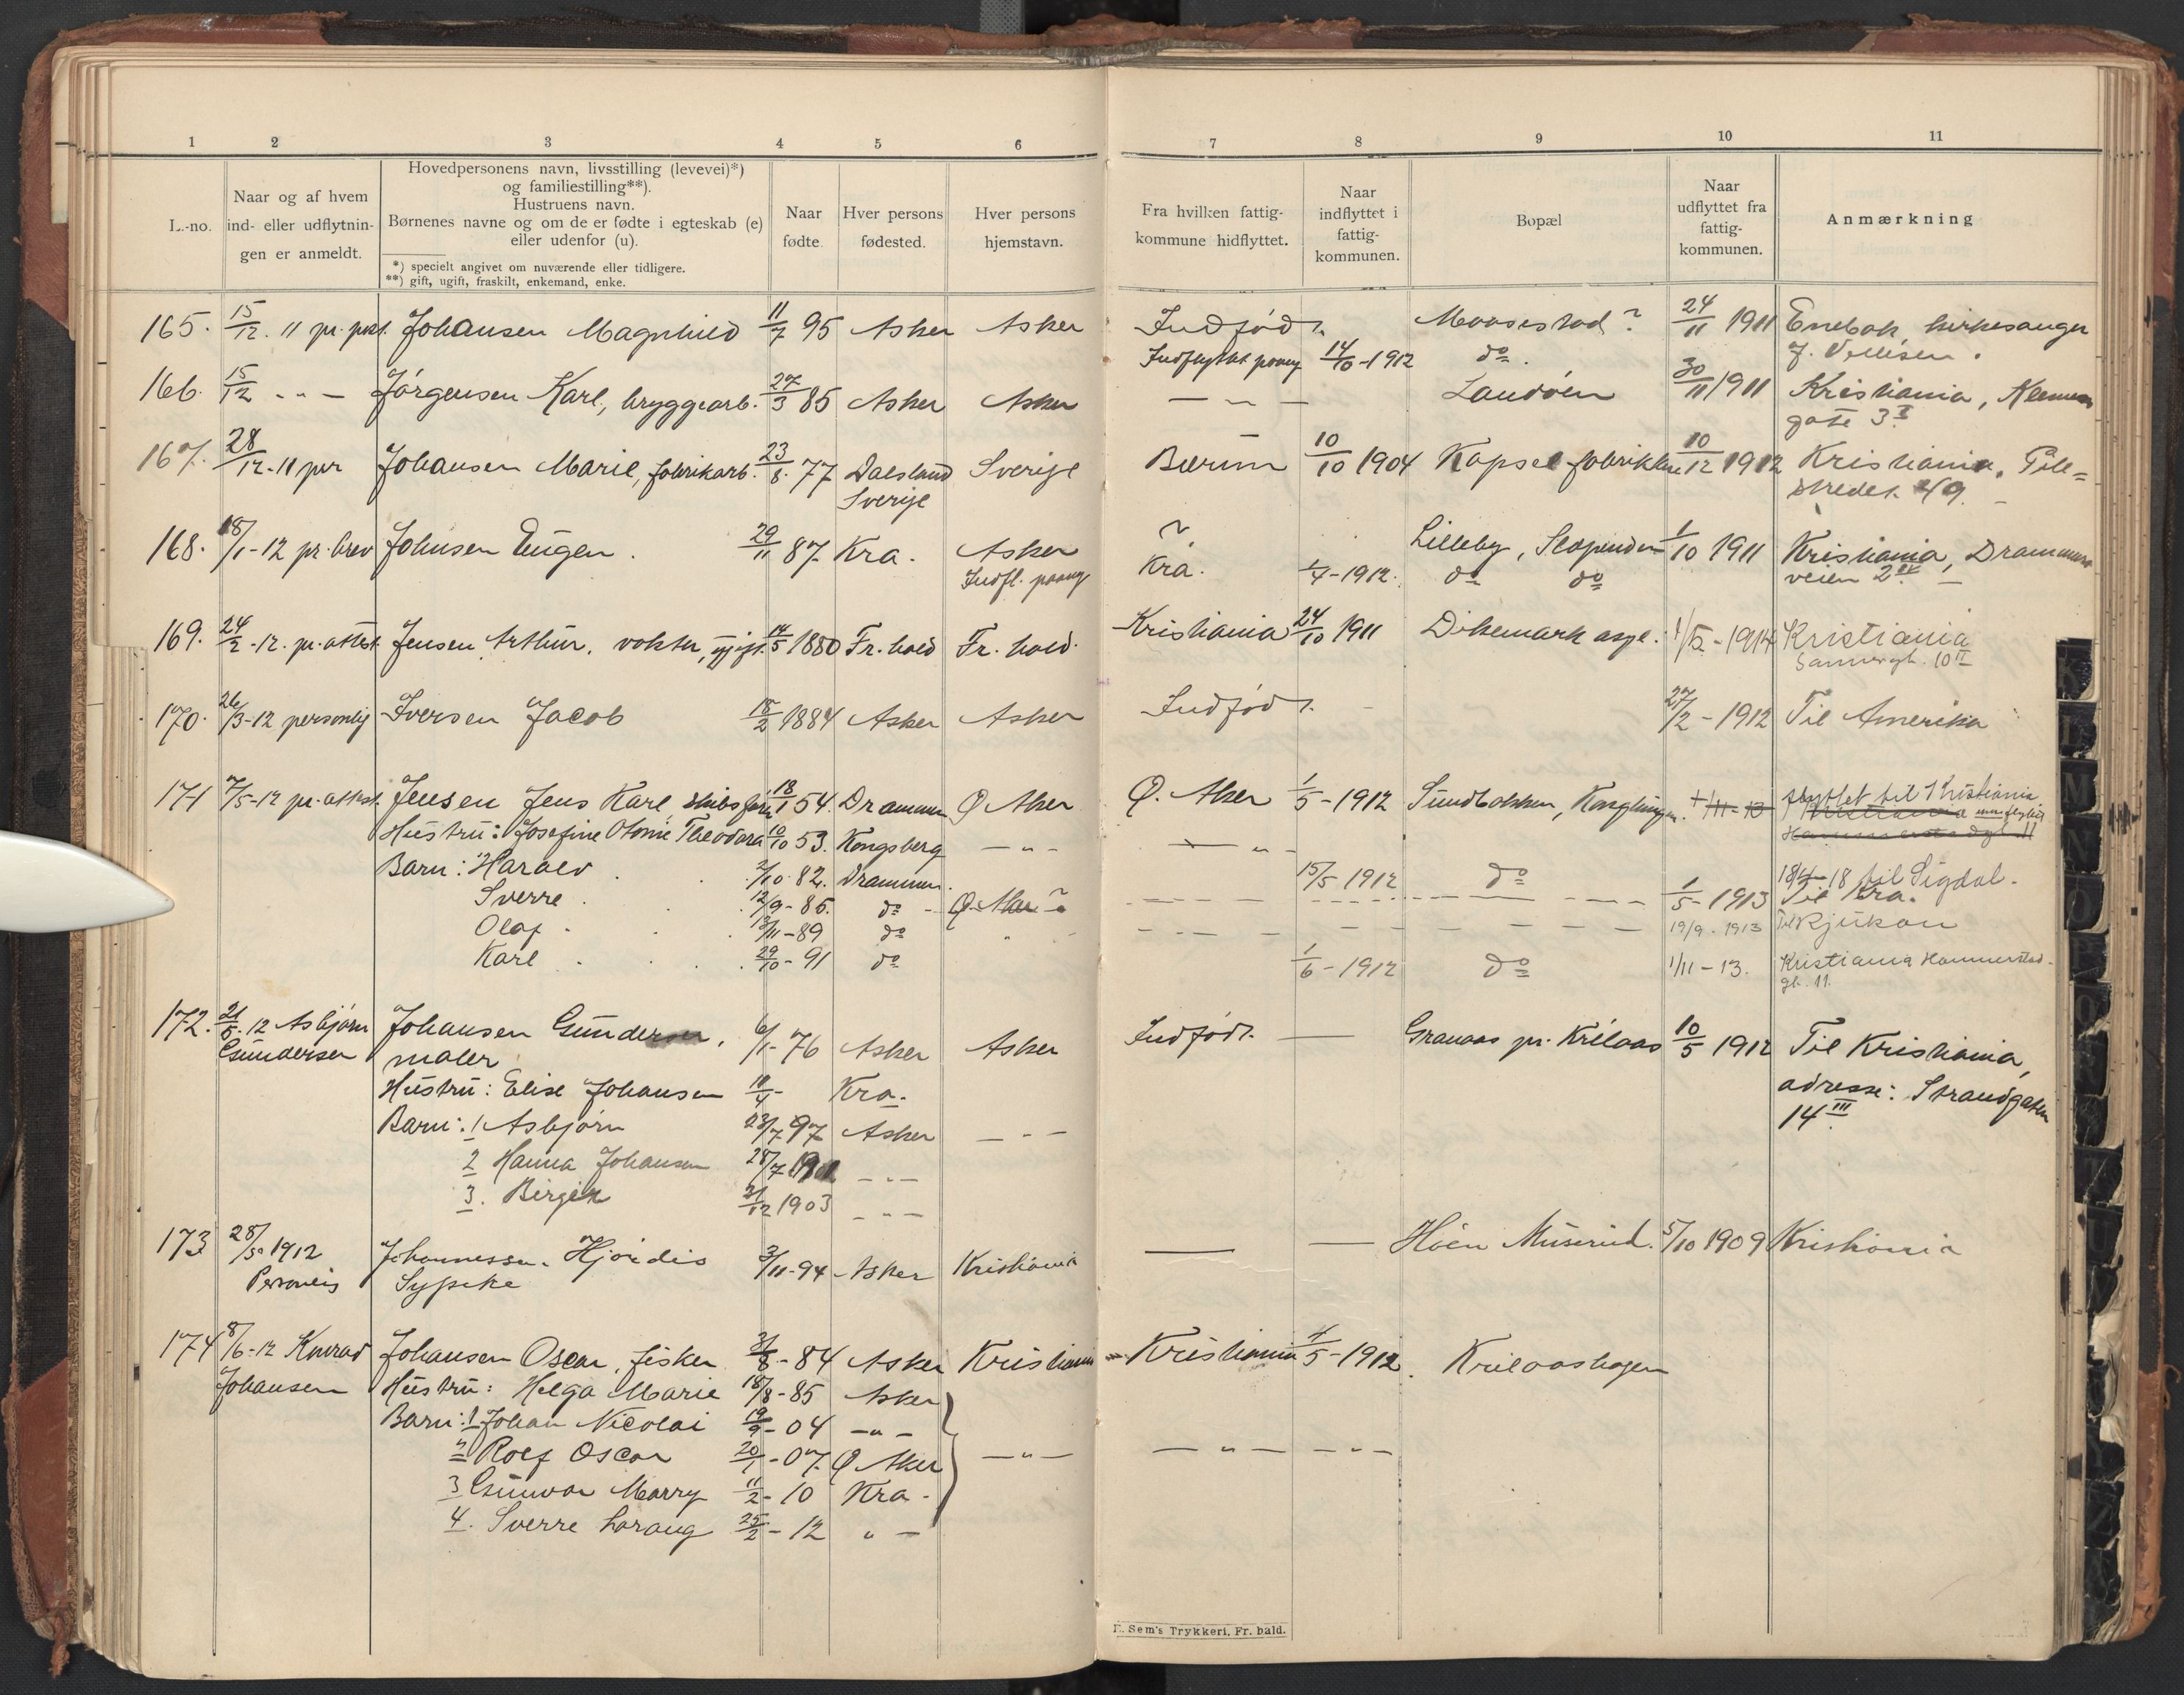 1 2 3 4 5 6 7 8 9 10 11
L.-no.
Naar og af hvem
ind- eller udflytnin-
gen er anmeldt.
Hovedpersonens navn, livsstilling (levevei)*)
og familiestilling**).
Hustruens navn.
Børnenes navne og om de er fødte i egteskab (e)
eller udenfor (u).
*) specielt angivet om nuværende eller tidligere.
**) gift, ugift, fraskilt, enkemand, enke.
Naar
fødte.
Hver persons
fødested.
Hver persons
hjemstavn.
Fra hvilken fattig-
kommune hidflyttet.
Naar
indflyttet i
fattig-
kommunen.
Bopæl
Naar
udflyttet fra
fattig-
kommunen.
Anmærkning
165. 15/12. 11 pr. post. Johansen Magnhild 11/7 95 Asker Asker Indfødt. Moosestad? 24/11 1911 Enebak, kirkesanger
Indflyttet paany 14/10-1912 do.
166. 15/12 - " - Jørgensen Karl, bryggearb. 27/3 85 Asker Asker - " - Landøen 30/11 1911 Kristiania,
gate 3 I
167. 28/12-11 per Johansen Marie, fabrikarb. 23/8 77 Dalsland Sverige Bærum 10/10 1904 Kapselfabrikken 10/12 1912 Kristiania, Pile-
Sverige stredet 49.
168. 18/1-12 pr. brev Johnsen Eugen. 29/11 87 Kra. Asker ? Lilleby, Slependen 1/10 1911 Kristiania, Drammens
Indfl. paany Kra. 1/4-1912. do do veien 2 IV
169. 24/2-12. pr. attest Jensen Arthur, vokter, ugift. 14/5 1880 Fr. hald Fr. hald. Kristiania 24/10 1911 Dikemark asyl. 1/5-1914 Kristiania
Sannergt. 10 II
170. 26/3-12 personlig Iversen Jacob 18/2 1884 Asker Asker Indfødt. - 27/2-1912 Til Amerika
171 7/5-12 pr. attest. Jensen Jens Karl skibsfører 18/1 54. Drammen Ø Aker Ø. Aker 1/5-1912 Sundbakken, Konglungen. 1/11-13 flyttet til Kristiania
Hustru: Josefine Otonie Theodora 10/10 53. Kongsberg - " - - " -
Barn: Harald 2/10 82. Drammen. 15/5 1912 do 18/4-18 til Sigdal.
Sverre 12/9-85. do Ø. Aker ? 1/5-1913 Til Kra.
Olaf 13/11-89 do 19/9-1913 Til Rjukan
Karl 29/10-91 do 1/6-1912 do 1/11-13. Kristiania Hammerstad-
gt. 11.
172. 21/5. 12 Asbjørn Johansen Gundersen, 6/1-76 Asker Asker Indfødt. - Granaas pr. Krilaas 10/5 1912 Til Kristiania,
Gundersen maler adresse: Strandgaten
Hustru: Elise Johansen 18/4- Kra. 14 III
Barn: 1 Asbjørn 23/7 97 Asker - " -
2 Hanna Johansen 28/7 1901 - " -
3. Birger 21/12 1903 - " -
173 28/5 1912 Johannessen Hjørdis 3/11-94 Asker Kristiania - - Høen Muserud. 5/10 1909 Kristiania
Personlig Sypike
174 8/6-12 Konrad Johansen Oscar, fisker 31/8-84 Asker Kristiania Kristiania 1/5-1912. Krilaashagen
Johansen Hustru: Helga Marie 18/8-85 Asker
Barn: 1 Johan Nicolai 19/9-04 - " -
2 Rolf Oscar 20/1-07. Ø Aker - " - - " - - " -
3 Gunvor Marry 11/2-10 Kra.
4. Sverre Harang 25/2-12 " -
E. Sem's Trykkeri, Fr. hald.